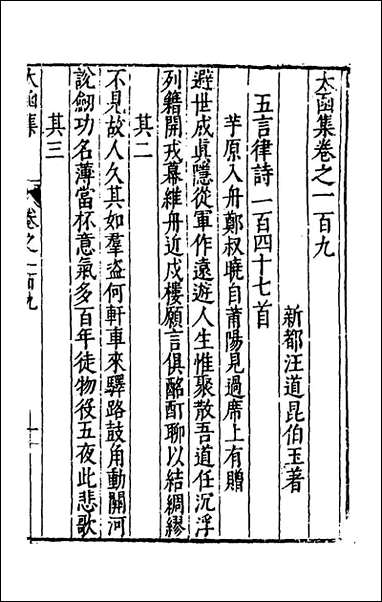 太函集卷之一百九
新都汪道昆伯玉著
五言律詩一百四十七首
芋原入舟鄭叔曉自莆陽見過席上有贈
避世成眞隱從軍作遠遊人生惟聚散吾道任沉浮
列籍開戎幕維舟近戍樓願言俱酩酊聊以結綢繆
其二
不見故人久其如羣盗何軒車來驛路鼓角動關河
說劒功名薄當杯意氣多百年徒物役五夜此悲歌
其三
太函集
卷之一百九
一